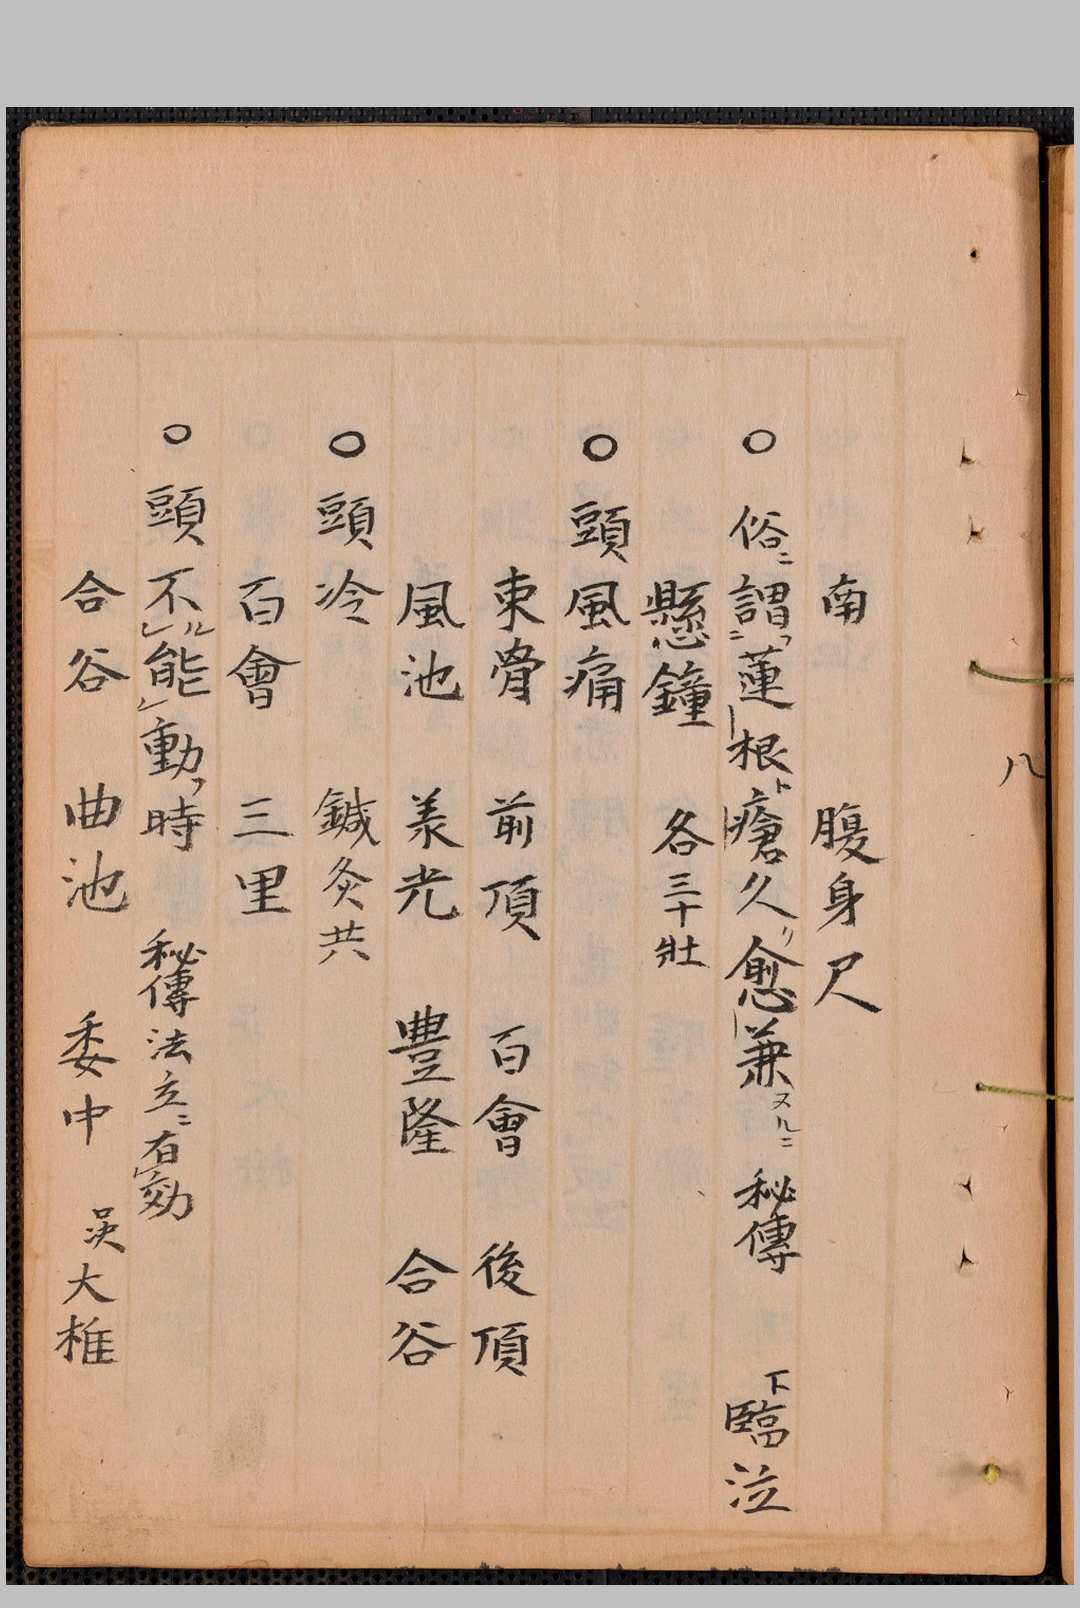 八
南 腹身尺
○ 俗ニ謂ニフ蓮根ト瘡久リ愈兼ヌルニ 秘傳 下臨泣
懸鐘 各三十壯
○ 頭風痛
束骨 前頂 百會 後頂
風池 羕光 豊隆 合谷
○ 頭冷 鍼灸共
百會 三里
○ 頭不レル能レ動フ時 秘傳法立ニ有レ効
合谷 曲池 委中 灵大椎